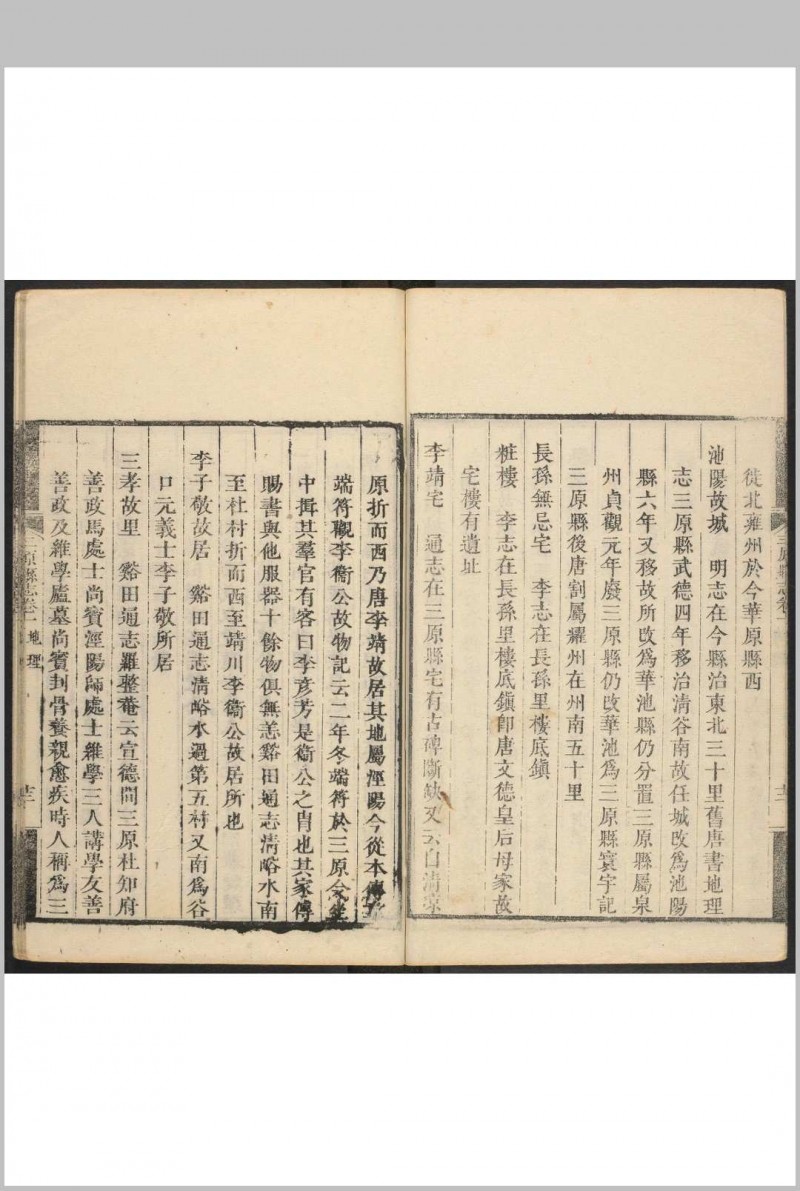 徙北雍州於今華原縣西
池陽故城　明志在今縣治東北三十里舊唐書地理
志三原縣武德四年移治清谷南故任城改爲池陽
縣六年又移故所改爲華池縣仍分置三原縣屬泉
州貞觀元年廢三原縣仍改華池爲三原縣寰宇記
三原縣後唐割屬耀州在州南五十里
長孫無忌宅　李志在長孫里樓底鎭
粧樓　李志在長孫里樓底鎭卽唐文德皇后母家故
宅樓有遺址
李靖宅　通志在三原縣宅有古碑斷缺又云自清涼
三原縣志卷一
十二
原折而西乃唐李靖故居其地屬涇陽今從本傳
端符觀李衞公故物記云二年冬端符於三原令座
中揖其羣官有客曰李彥芳是衞公之胄也其家傳
賜書與他服器十餘物俱無恙谿田通志清峪水南
至杜村折而西至靖川李衞公故居所也
李子敬故居　谿田通志清峪水過第五村又南爲谷
口元義士李子敬所居
三孝故里　谿田通志羅整菴云宣德間三原杜知府
善政馬處士尚賓涇陽師處士維學三人講學友善
善政及維學廬墓尚賓刲骨養親愈疾時人稱爲三
三原縣志卷一 地理
十二